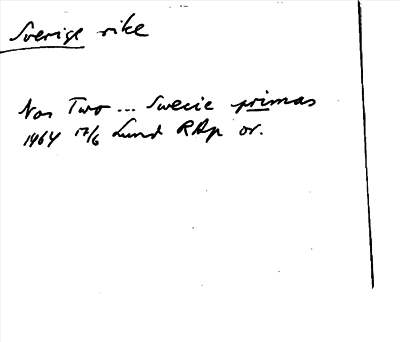 Sverige rike
Nos Two ... Swecie primas
1464 17/6 Lund RAp or.